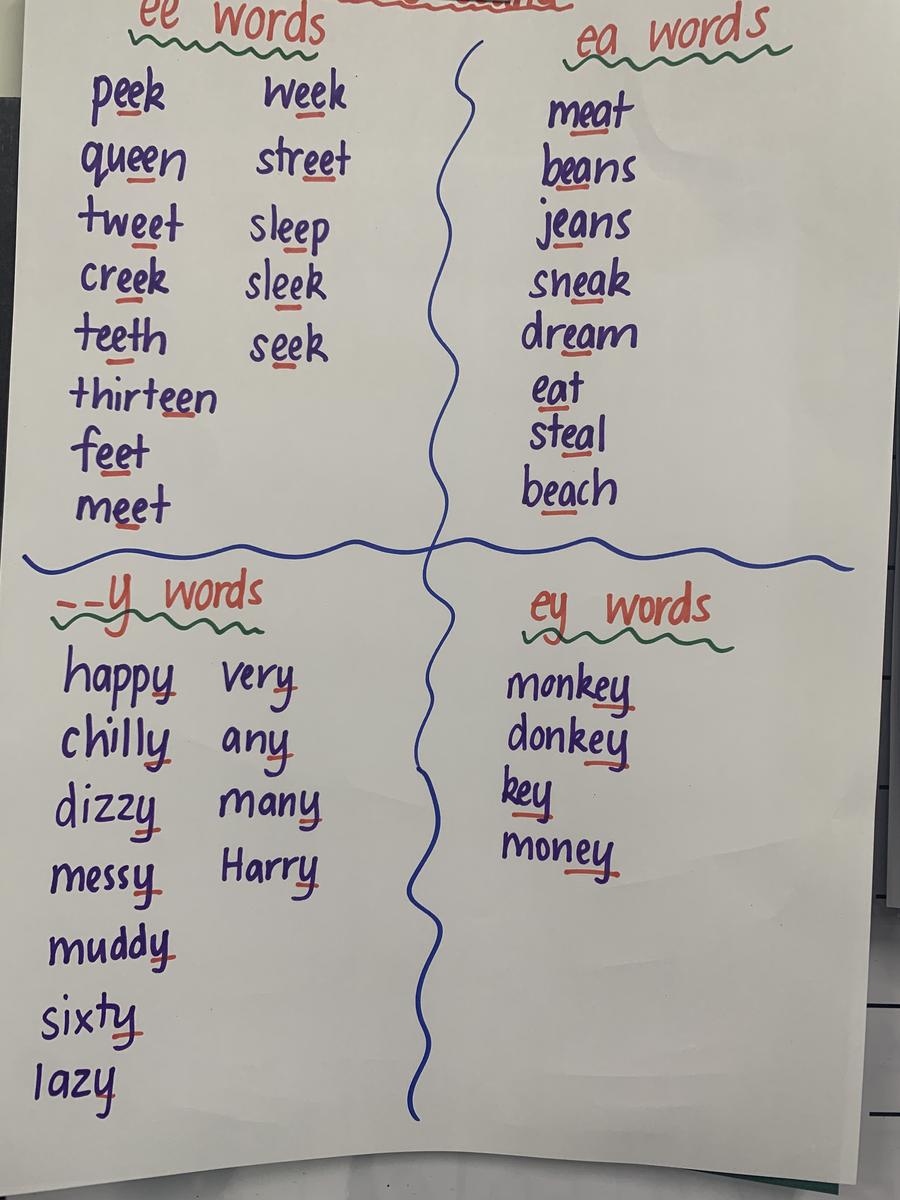 ee words
peek week
queen street
tweet sleep
creek sleek
teeth seek
thirteen
feet
meet
ea words
meat
beans
jeans
sneak
dream
eat
steal
beach
--y words
happy very
chilly any
dizzy many
messy Harry
muddy
sixty
lazy
ey words
monkey
donkey
key
money